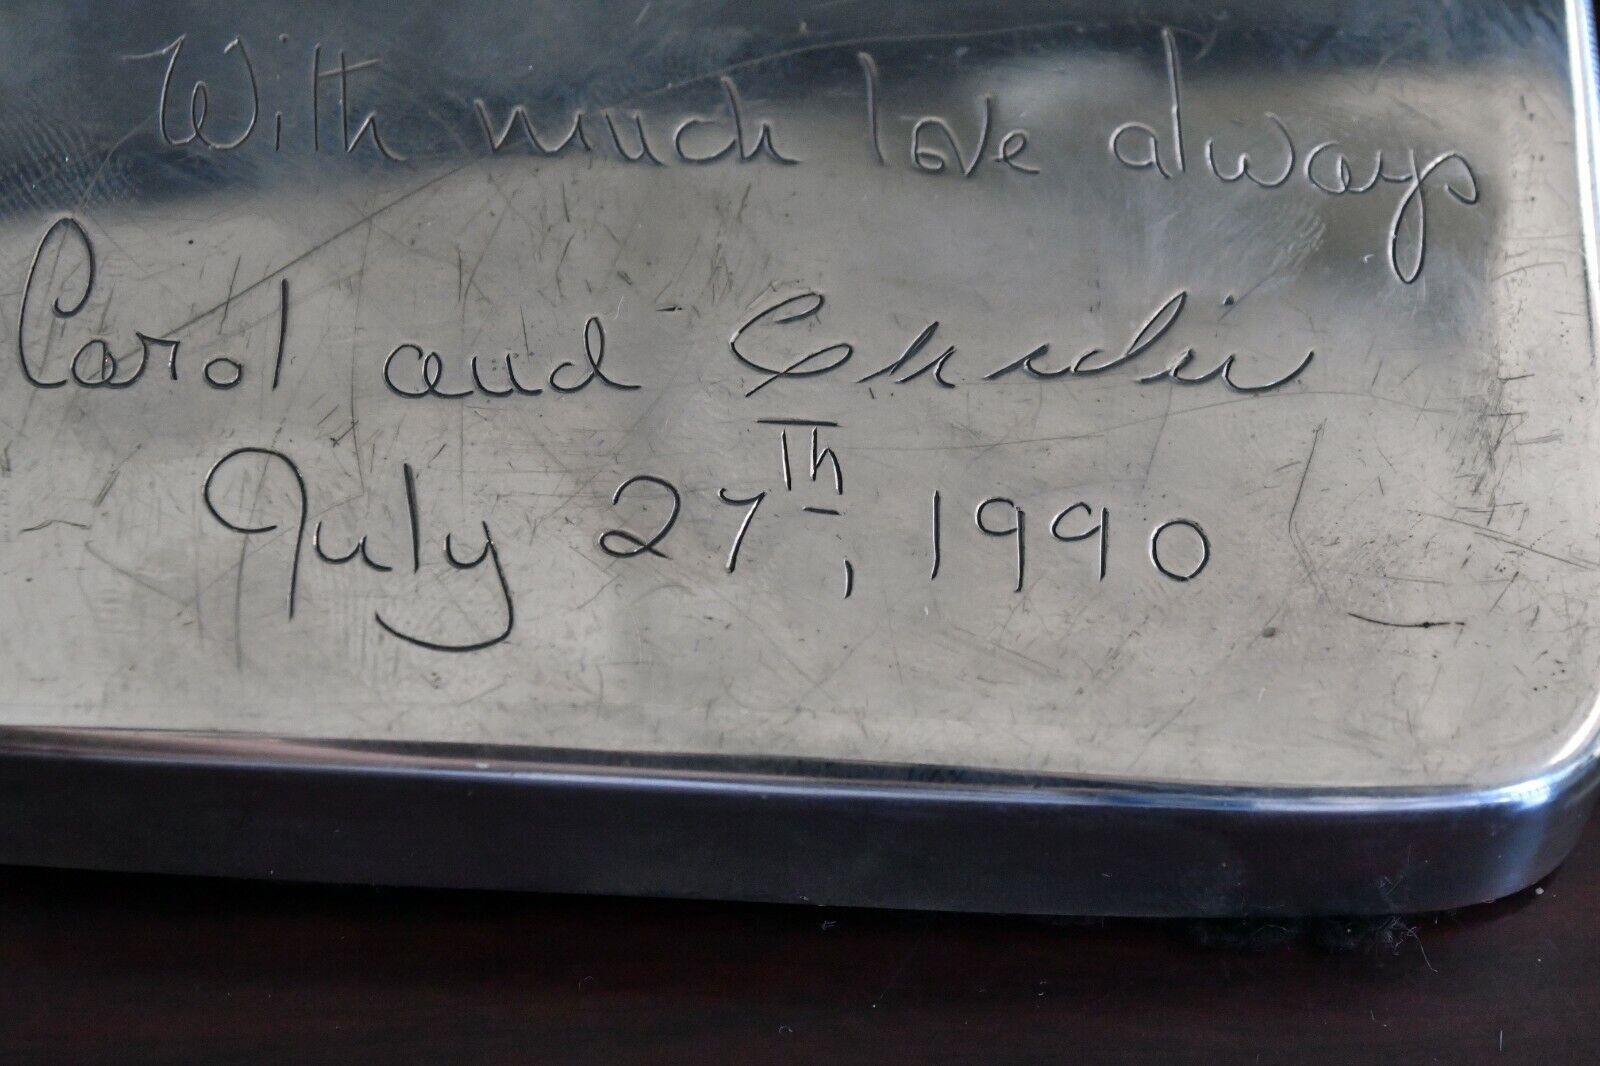 With much love always
Carol and
July 27Th, 1990